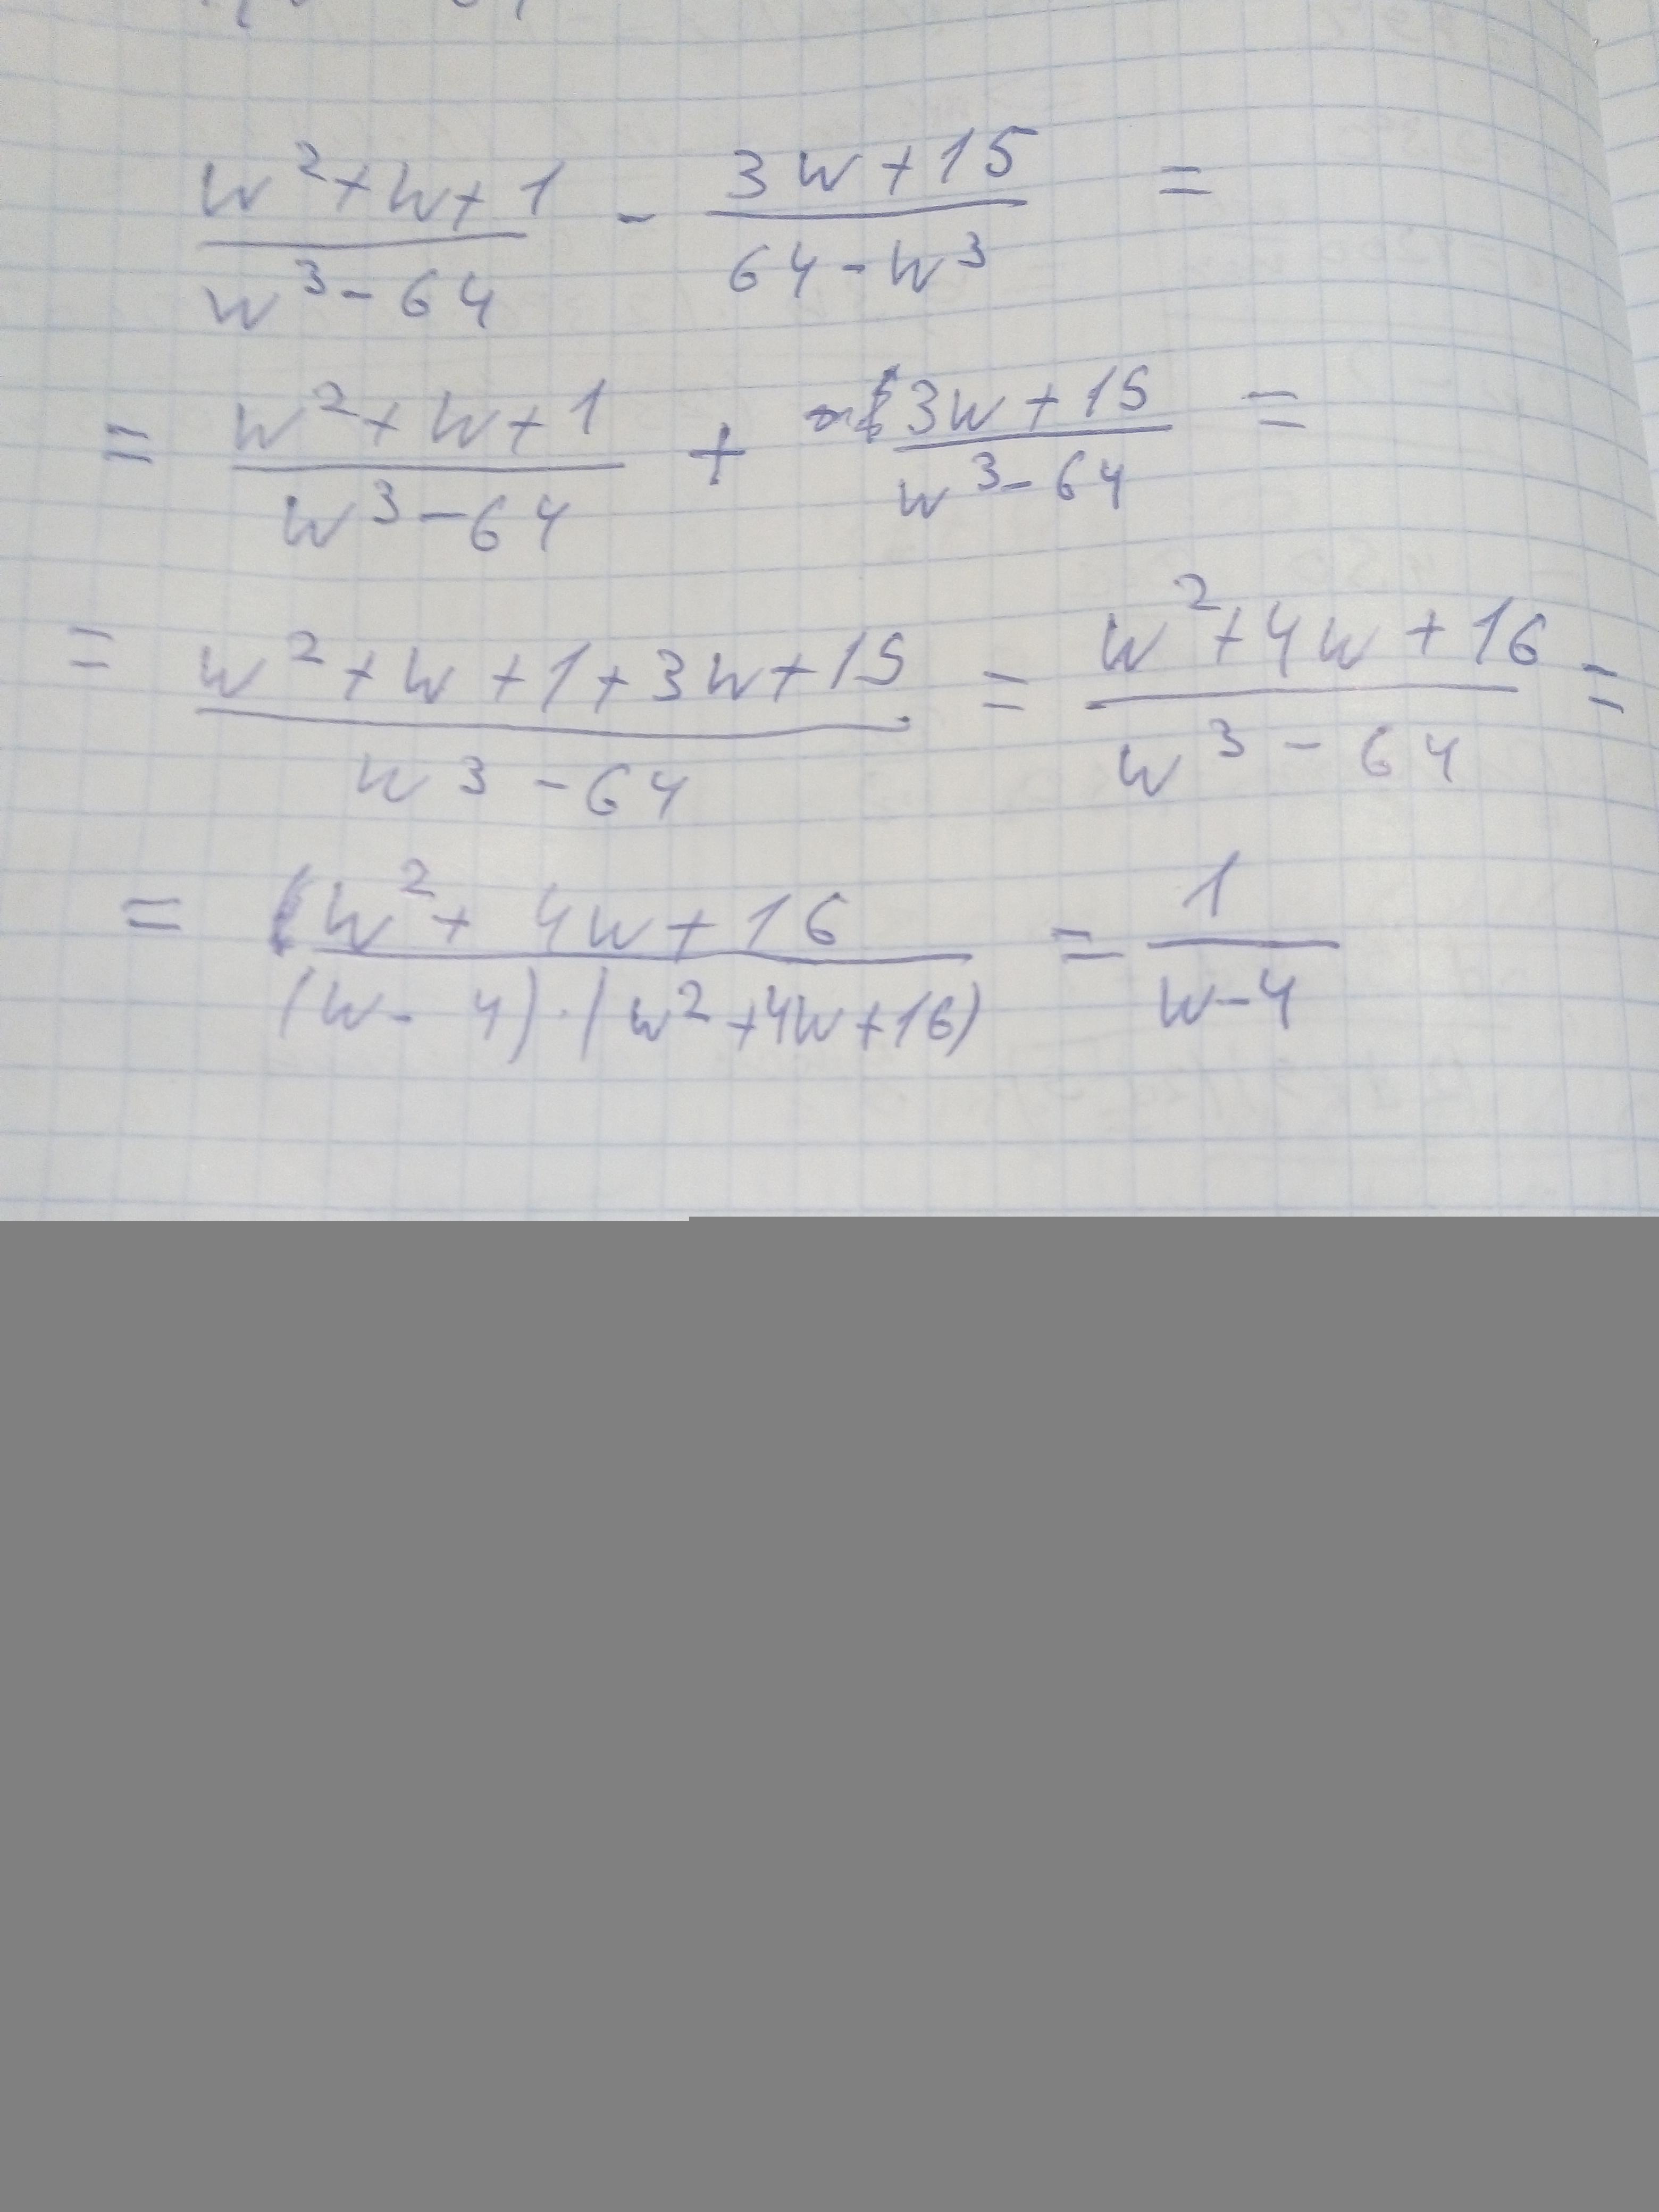 w²+w+1/w³-64 - 3w+15/64-w³ =
= w²+w+1/w³-64 + 3w+15/w³-64 =
= w²+w+1+3w+15/w³-64 = w²+4w+16/w³-64 =
= w²+4w+16/(w-4)·(w²+4w+16) = 1/w-4